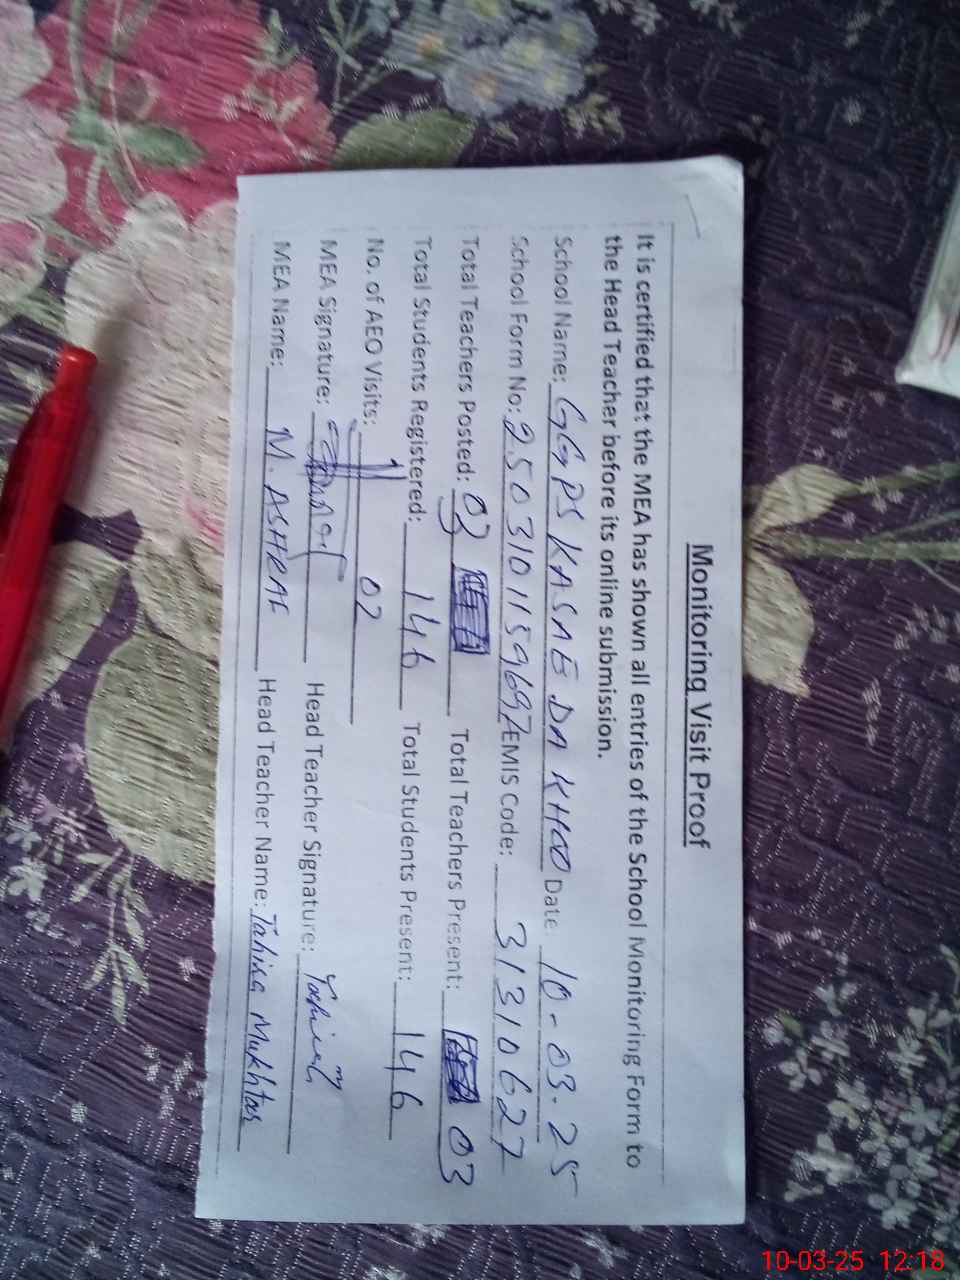 Monitoring Visit Proof
It is certified that the MEA has shown all entries of the School Monitoring Form to
the Head Teacher before its online submission.
School Name: GGPS KASAB DA KHOO Date: 10-03-25
School Form No: 250310115969 EMIS Code: 31310627
Total Teachers Posted: 03 Total Teachers Present: 03
Total Students Registered: 146 Total Students Present: 146
No. of AEO Visits: 02
MEA Signature: Head Teacher Signature:
MEA Name: M. ASHRAF Head Teacher Name: Tahira Mukhtar
10-03-25 12:18